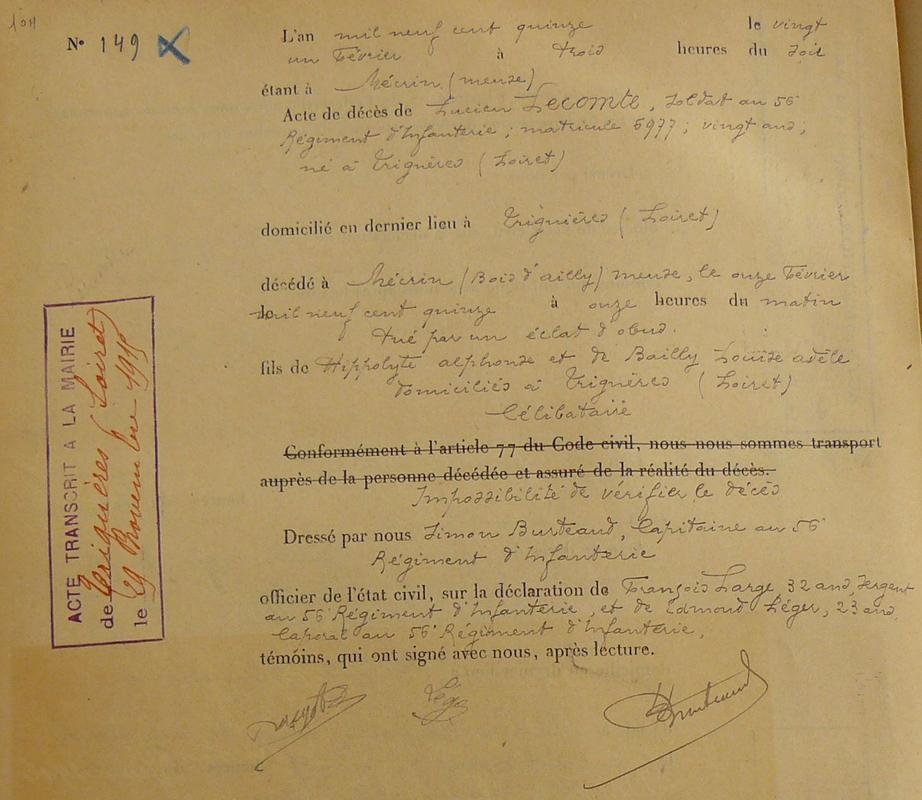 N° 149
L'an mil neuf cent quinze le vingt
un Février à trois heures du soir
étant à Mécrin (meuse)
Acte de décès de Lucien Lecomte, soldat au 56e
Régiment d'Infanterie ; matricule 5977 ; vingt ans ;
né à Trignères (Loiret)
domicilié en dernier lieu à Trignières (Loiret)
décédé à Mécrin (Bois d'ailly) meuse, le onze Février
mil neuf cent quinze à onze heures du matin
tué par un éclat d'obus.
fils de Hippolyte alphonse et de Bailly Louise adèle
domiciliés à Trignères (Loiret)
Célibataire
Conformément à l'article 77 du Code civil, nous nous sommes transport
auprès de la personne décédée et assuré de la réalité du décès.
Impossibilité de vérifier le décès
Dressé par nous Simon Burteaud, Capitaine au 56e
Régiment d'Infanterie
officier de l'état civil, sur la déclaration de François Large, 32 ans, sergent
au 56e Régiment d'Infanterie, et de Edmond Léger, 23 ans,
Caporal au 56e Régiment d'Infanterie,
témoins, qui ont signé avec nous, après lecture.
Léger
ACTE TRANSCRIT A LA MAIRIE
de Trignères (Loiret)
le Novembre 1915